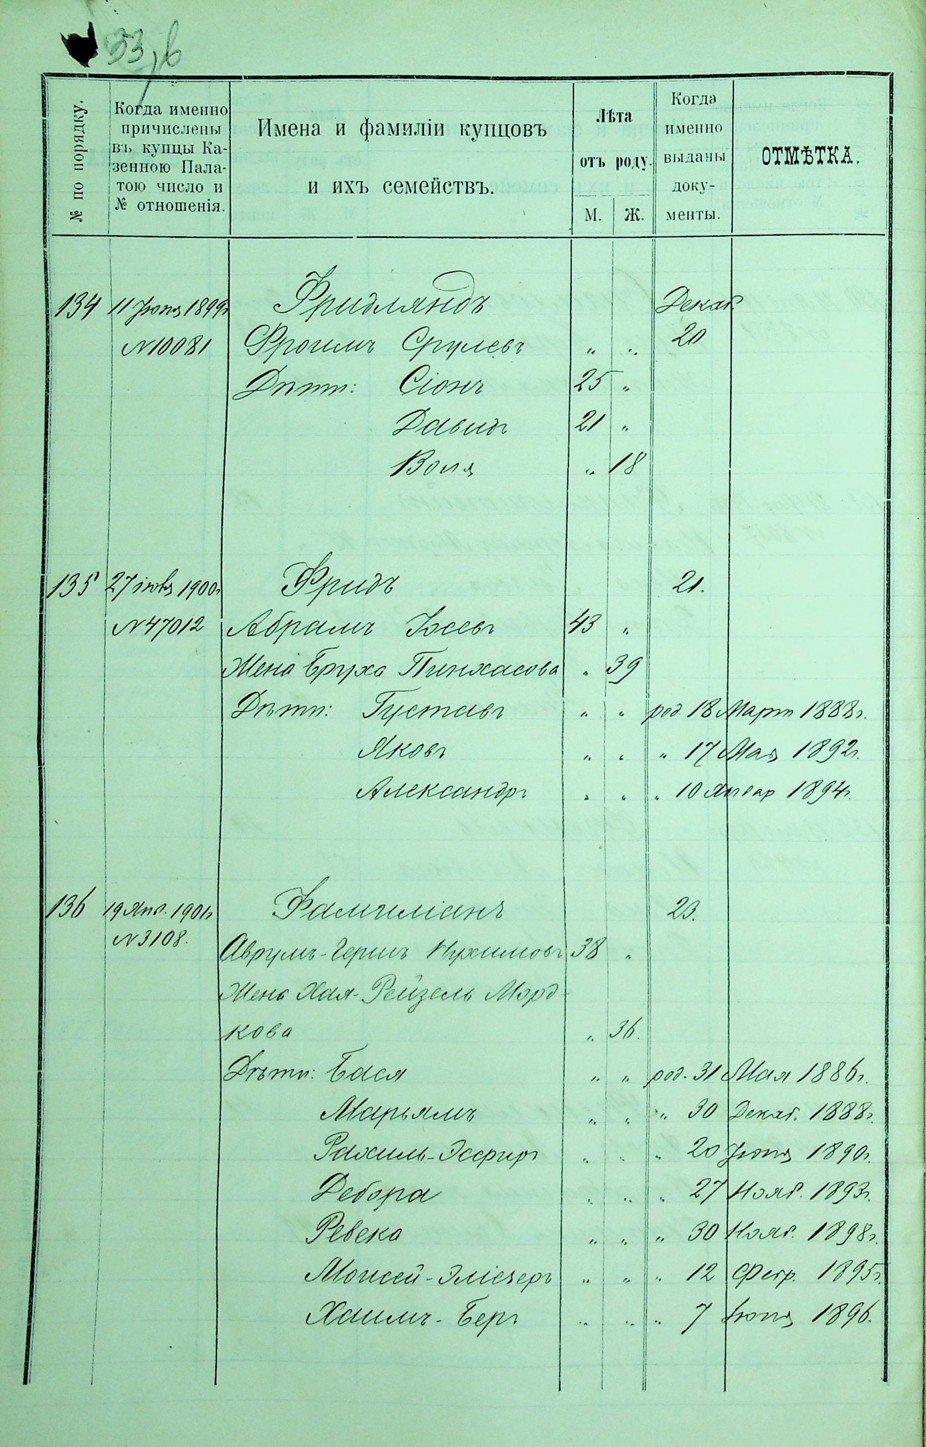 33, b
№ по порядку.
Когда именно
причислены
въ купцы Ка-
зенною Пала-
тою число и
№ отношенія.
Имена и фамиліи купцовъ
и ихъ семействъ.
Лѣта
отъ роду.
М. Ж.
Когда
именно
выданы
доку-
менты.
ОТМѢТКА.
134 11 Іюня 1899г. Фридляндъ Декаб.
№ 10081 Фроимъ Срулевъ „ „ 20
Дѣти: Сіонъ 25 „
Давидъ 21 „
Воля „ 18
135 27 1900г. Фридъ 21.
№ 47012 Абрамъ Іосевъ 43 „
Жена Бруха Пинхасова „ 39
Дѣти: Густавъ „ „ род. 18 Марта 1888г.
Яковъ „ „ „ 17 Мая 1892г.
Александръ „ „ „ 10 Январ 1894г.
136 19 Янв. 1901г. Фамиліантъ 23.
№ 3108. Аврумъ-Гершъ Нухимовъ 38 „
Жена Хая-Рейзель Морд-
кова „ 36.
Дѣти: Бася „ „ род. 31 Мая 1886г.
Марьямъ „ „ „ 30 Декаб. 1888г.
Рахиль-Эсфирь „ „ „ 20 Іюня 1890г.
Дебора „ „ „ 27 Нояб. 1893г.
Ревека „ „ „ 30 Нояб. 1898г.
Моисей-Эліезеръ „ „ „ 12 Февр. 1895г.
Хаимъ-Беръ „ „ „ 7 Іюня 1896.